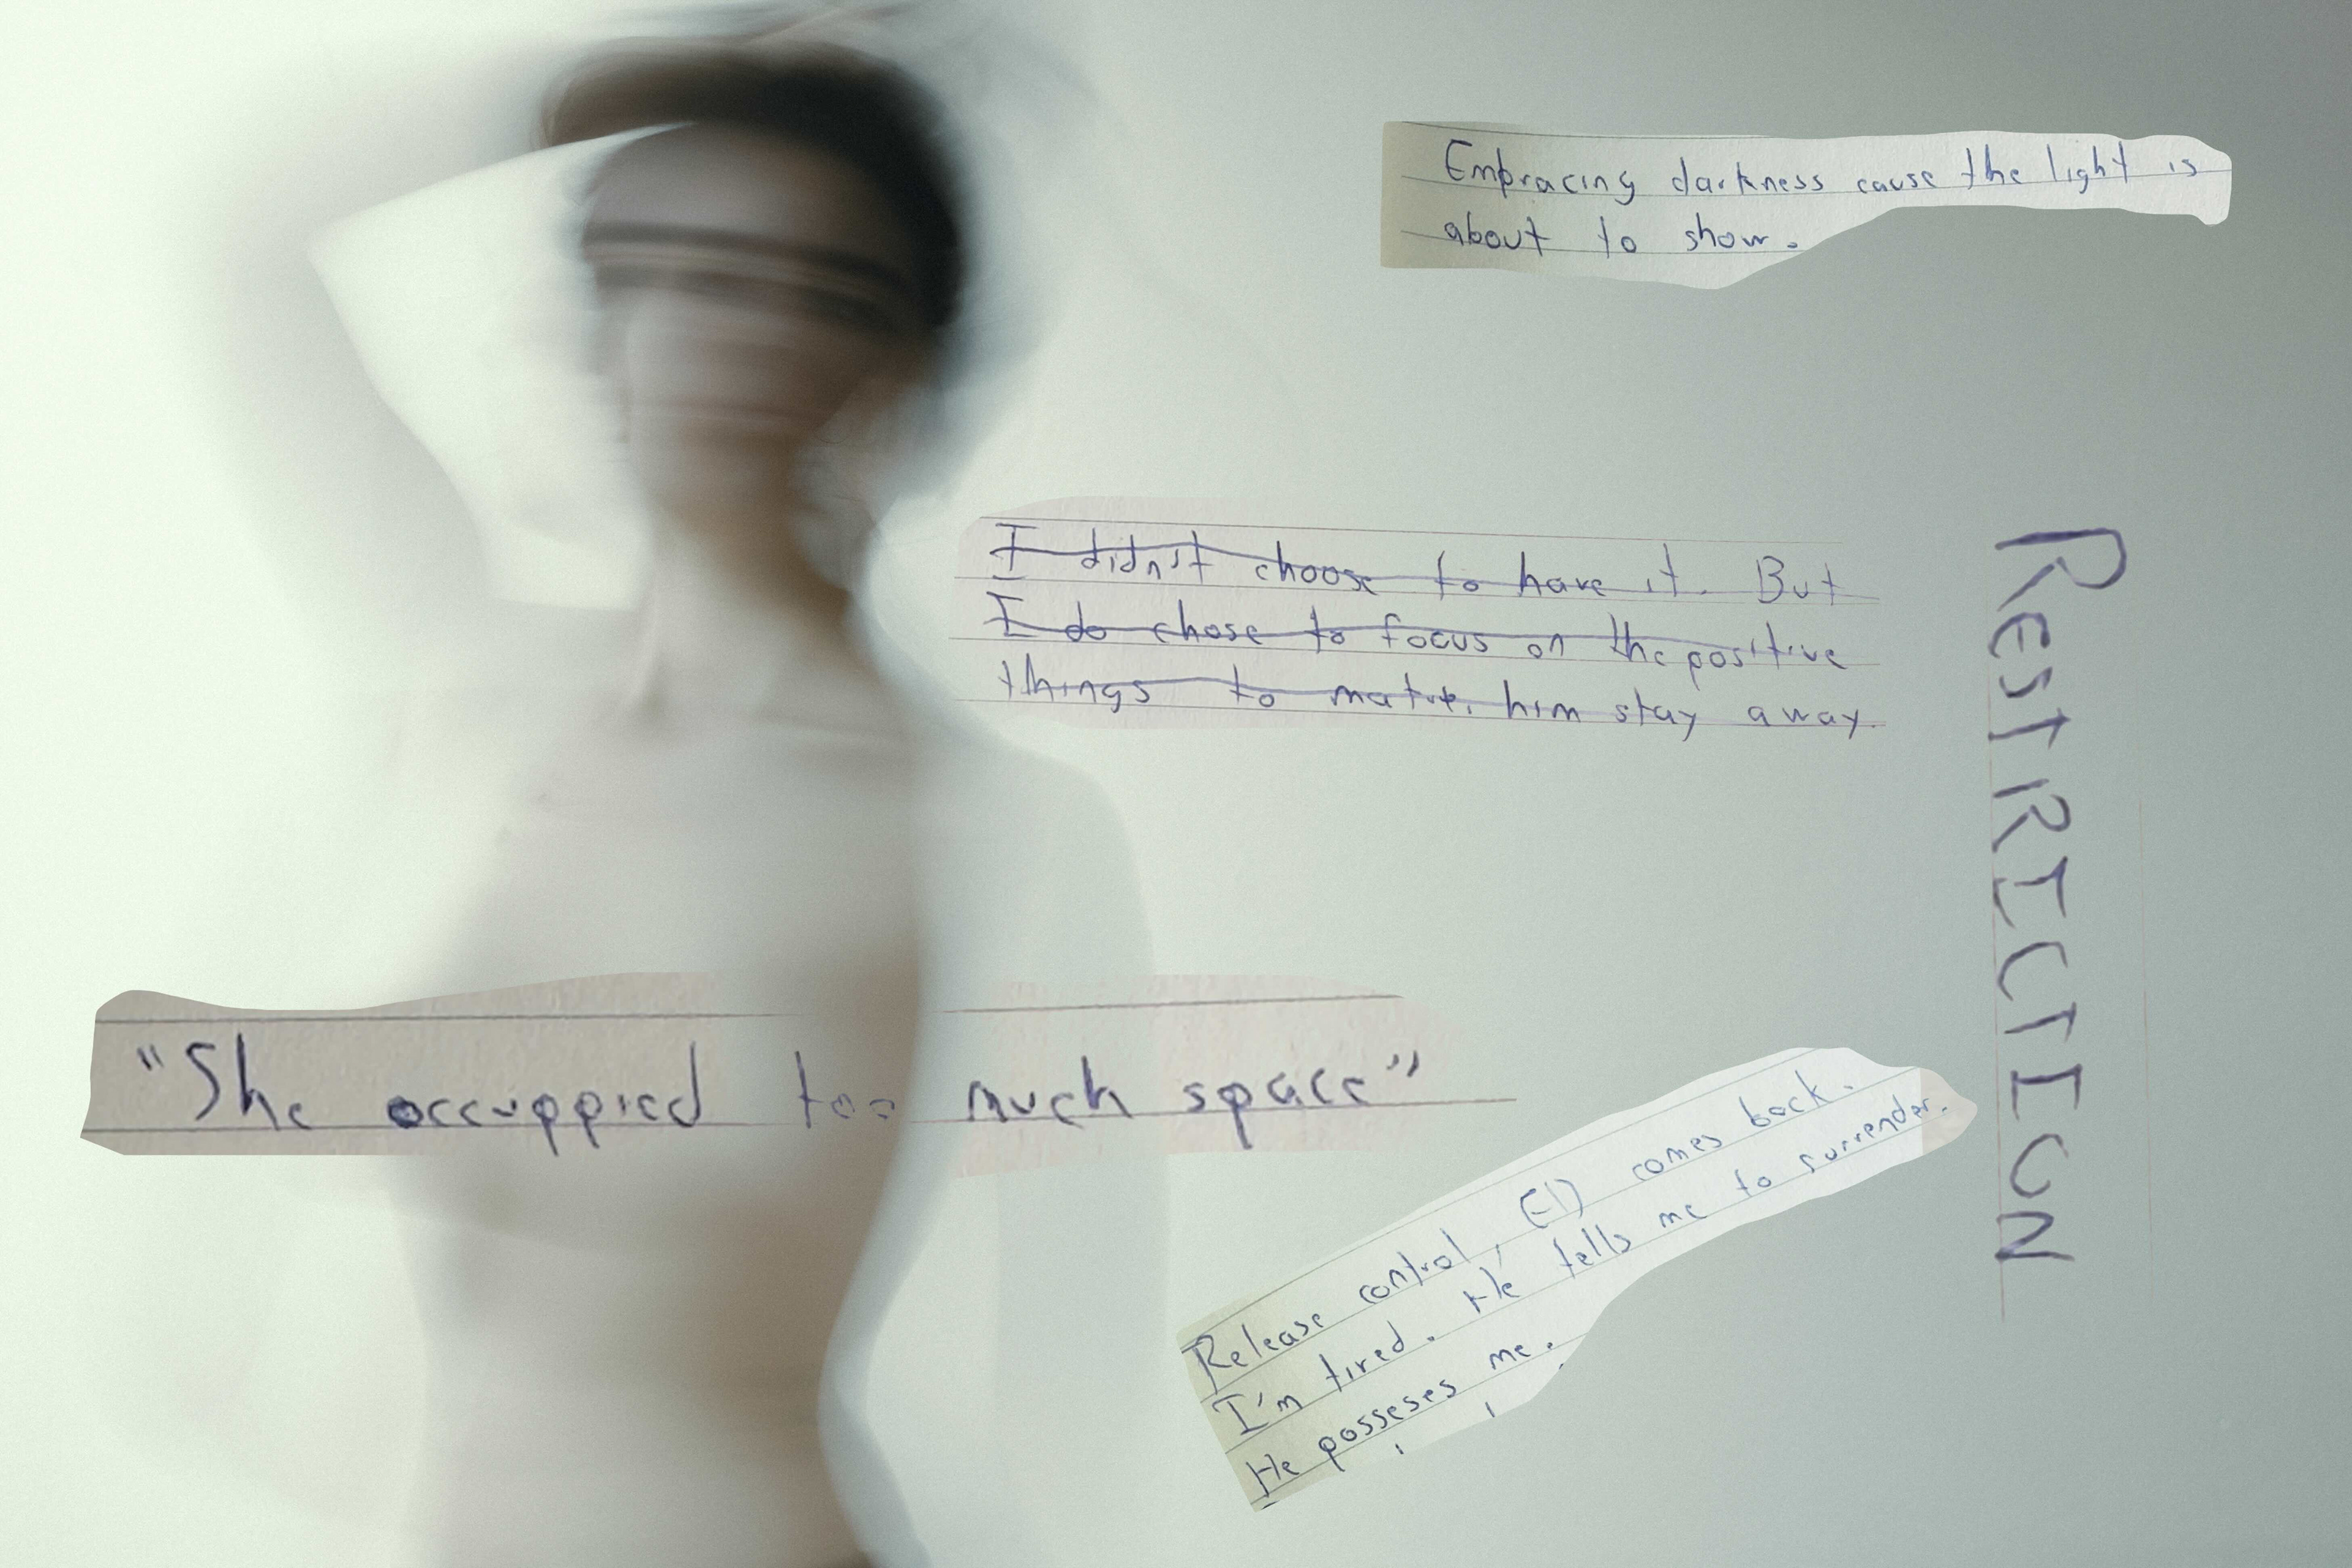 Embracing darkness cause the light is
about to show.
I didn't choose to have it. But
I do chose to focus on the positive
things to him stay away.
RESTRICTION
"She occuppied too much space"
Release control, (El) comes back.
I'm tired. He tells me to surrender.
He posseses me.